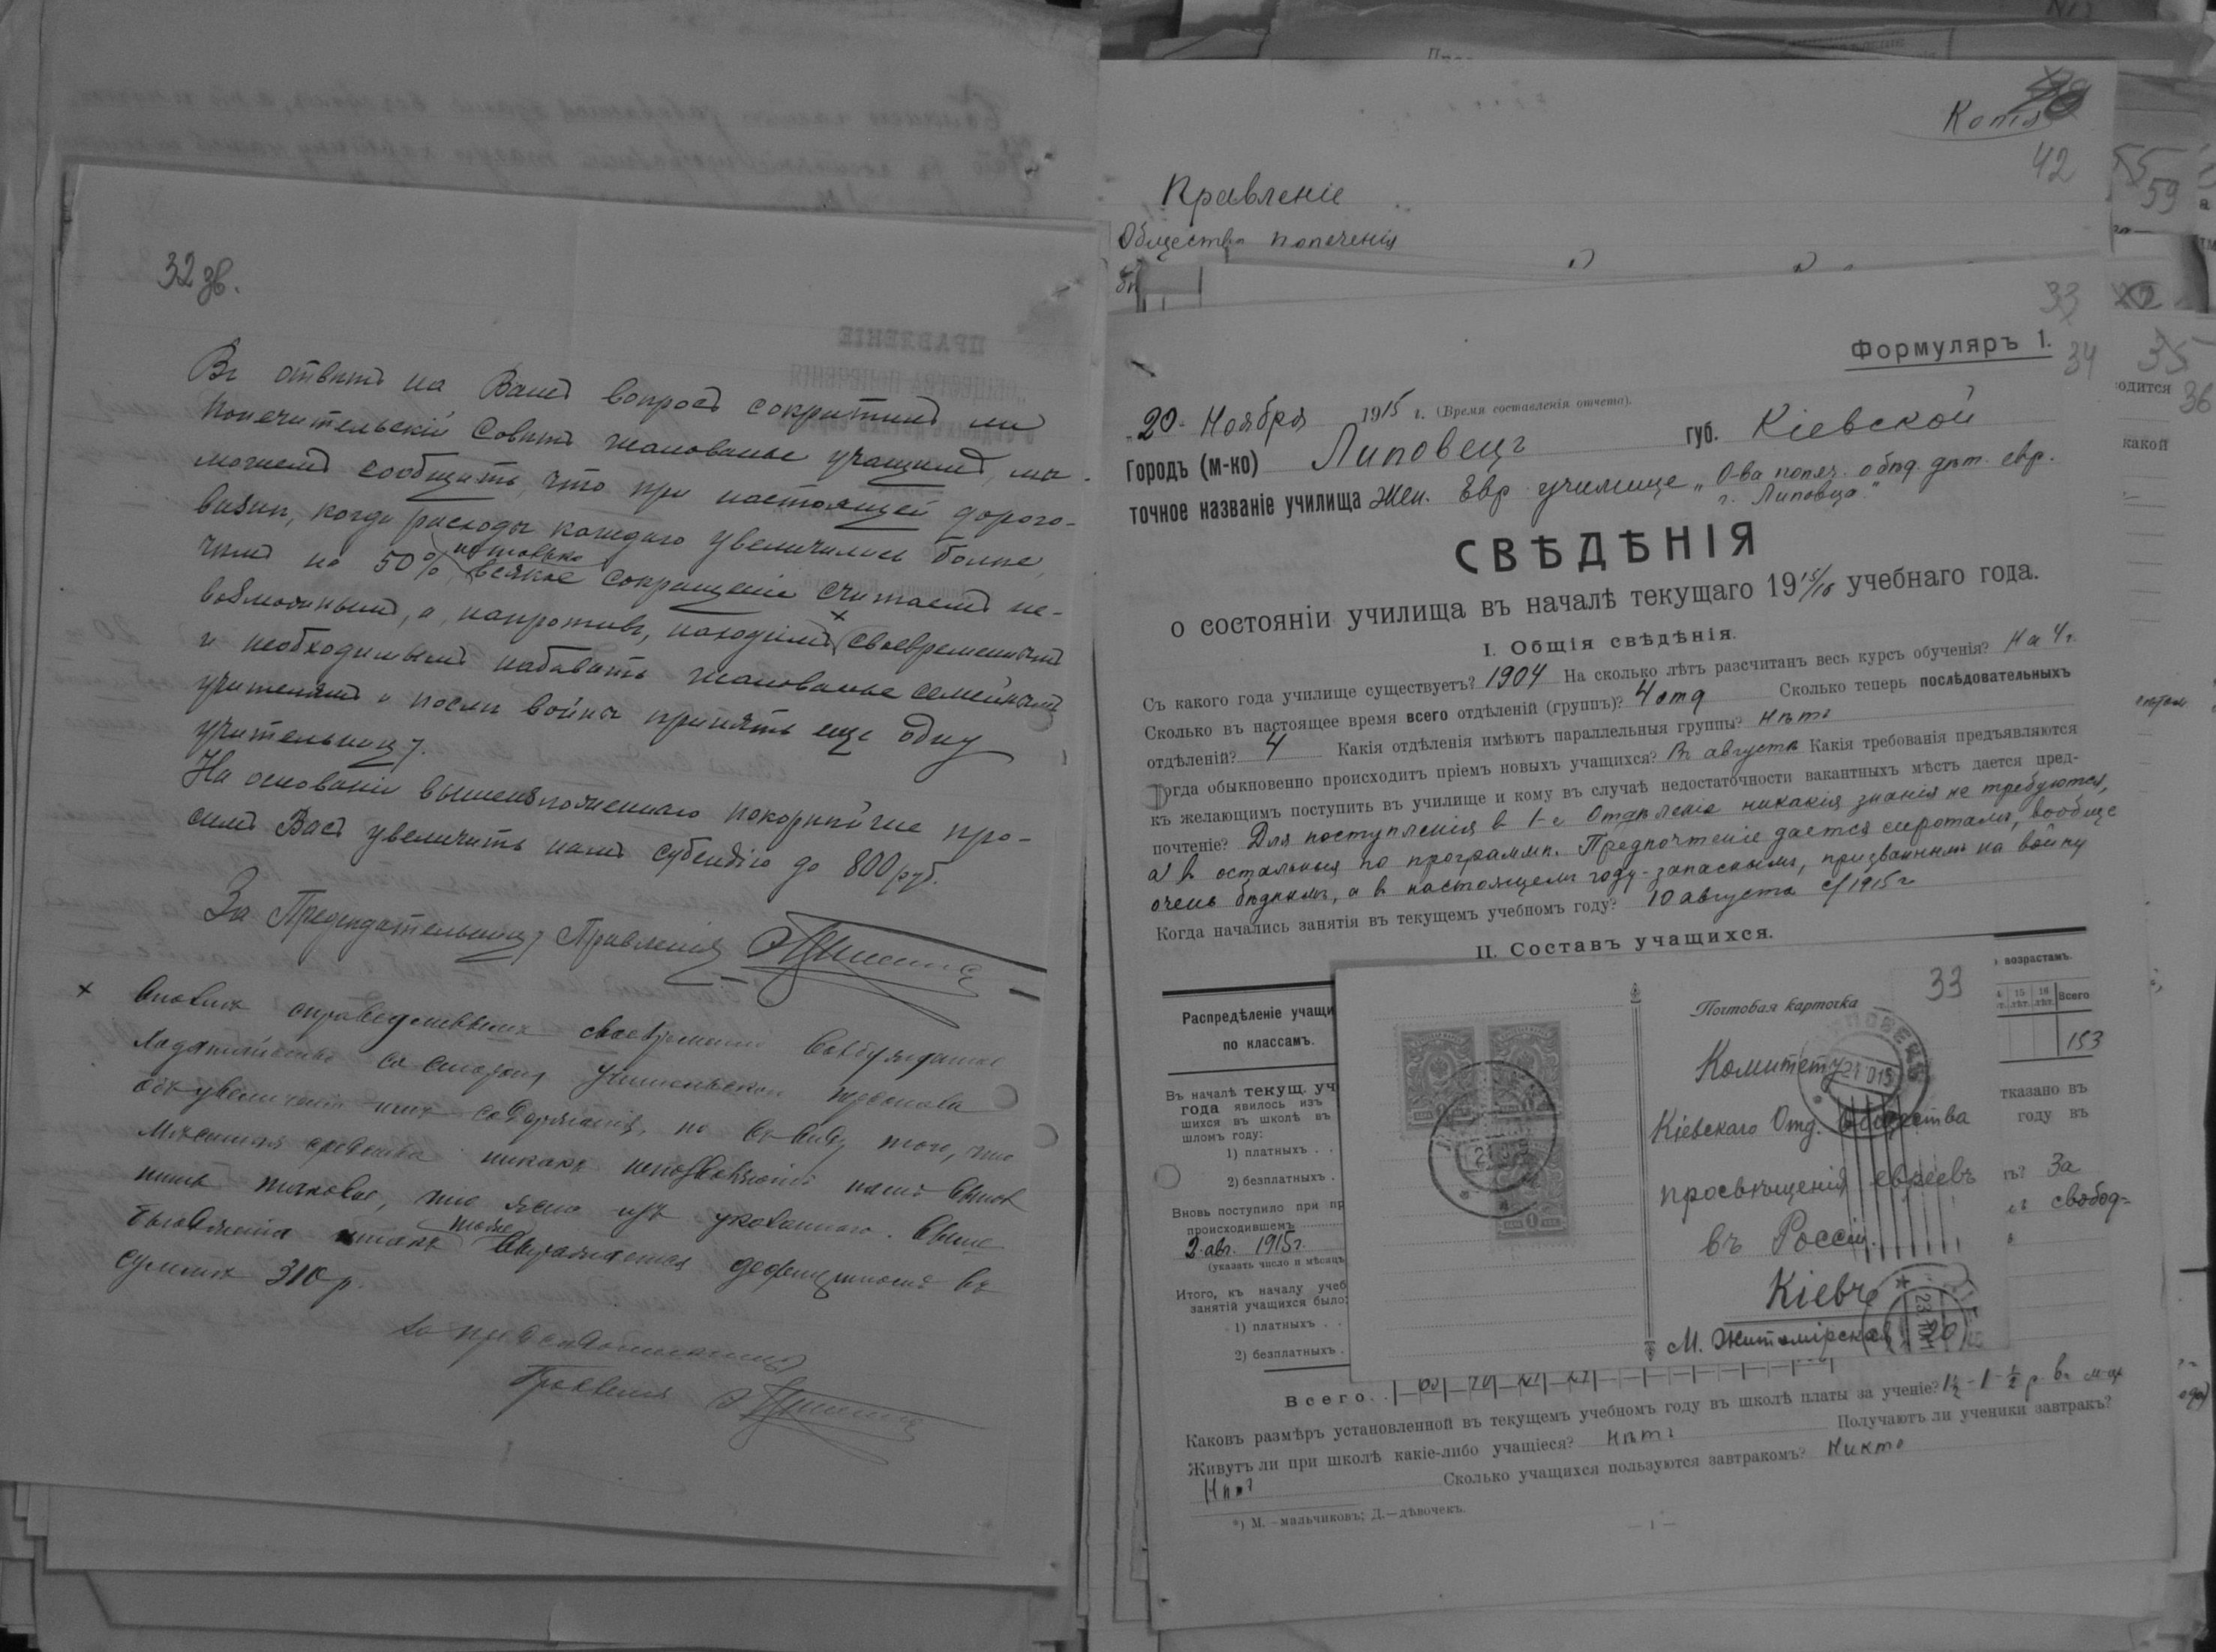 32 зв.
Въ отвѣтъ на Вашъ вопросъ сократилъ ли
Попечительскій Совѣтъ жалованье учащимъ, мы
можемъ сообщить, что при настоящей дорого-
визнѣ, когда расходы каждаго увеличились болѣе,
чѣмъ на 50%, не только
всякое сокращеніе считаемъ не-
возможнымъ, а, напротивъ, находимъ × своевременнымъ
и необходимымъ набавить жалованье семейнымъ
учителямъ и послѣ войны принять еще одну
учительницу.
На основаніи вышеизложеннаго покорнѣйше про-
симъ Васъ увеличить намъ субсидію до 800 руб.
За Предсѣдательницу Правленія
× Вполнѣ справедливымъ своевременно возбужденное
ходатайство со стороны учительскаго персонала
объ увеличеніи ихъ содержанія, но въ виду того, что
мѣстныя средства никакъ не позволяютъ намъ выпол
нить таковое, что ясно изъ указаннаго выше
тоже выражается дефицитомъ въ
суммѣ 310 р.
За предсѣдательницу
Правленія
Копія
42
Правленіе
Общества попеченія
33
34
Формуляръ 1.
„20" Ноября 1915 г. (Время составленія отчета).
Городъ (м-ко) Липовецъ губ. Кіевской
точное названіе училища Жен. Евр училище „О-ва попеч. о бѣд. дѣт. евр.
г. Липовца."
СВѢДѢНІЯ
о состояніи училища въ началѣ текущаго 1915/16 учебнаго года.
I. Общія свѣдѣнія.
Съ какого года училище существуетъ? 1904 На сколько лѣтъ разсчитанъ весь курсъ обученія? На 4 г.
Сколько въ настоящее время всего отдѣленій (группъ)? 4 отд Сколько теперь послѣдовательныхъ
отдѣленій? 4 Какія отдѣленія имѣютъ параллельныя группы? Нѣтъ
Когда обыкновенно происходитъ пріемъ новыхъ учащихся? Въ августѣ Какія требованія предъявляются
къ желающимъ поступить въ училище и кому въ случаѣ недостаточности вакантныхъ мѣстъ дается пред-
почтеніе? Для поступленія в 1-е Отдѣленіе никакія знанія не требуются,
а в остальныя по программѣ. Предпочтеніе дается сиротамъ, вообще
очень бѣднымъ, а в настоящемъ году - запаснымъ, призваннымъ на войну
Когда начались занятія въ текущемъ учебномъ году? 10 августа с/1915 г
II. Составъ учащихся.
Распредѣленіе учащи
по классамъ.
возрастамъ.
15 лѣт. 16 лѣт. Всего
153
Въ началѣ текущ. уч
года явилось изъ
щихся въ школѣ въ
шломъ году:
1) платныхъ . .
2) безплатныхъ .
Вновь поступило при пр
происходившемъ
2 авг. 1915 г.
(указать число и мѣсяцъ
Итого, къ началу учеб
занятій учащихся было:
1) платныхъ . .
2) безплатныхъ .
33
Почтовая карточка
Комитету
Кіевскаго Отд. Общества
просвѣщенія евреевъ
въ Россіи.
Кіевъ
М. Житомірская 20
тказано въ
году въ
ъ? За
свобод=
Всего. .
Каковъ размѣръ установленной въ текущемъ учебномъ году въ школѣ платы за ученіе?
Живутъ ли при школѣ какіе-либо учащіеся? Нѣтъ Получаютъ ли ученики завтракъ?
Нѣтъ Сколько учащихся пользуются завтракомъ? Никто
*) М.—мальчиковъ; Д.—дѣвочекъ.
— 1 —
55
59
35
36
одится
какой